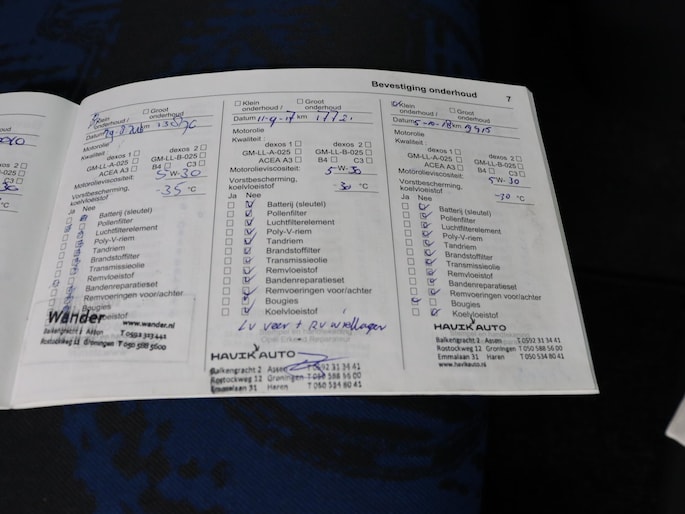 Bevestiging onderhoud 7
Klein onderhoud / Groot onderhoud
Datum km
Motorolie
Kwaliteit:
dexos 1 dexos 2
GM-LL-A-025 GM-LL-B-025
ACEA A3 B4 C3
Motorolieviscositeit: 5 W-30
Vorstbescherming, koelvloeistof -35 °C
Ja Nee
Batterij (sleutel)
Pollenfilter
Luchtfilterelement
Poly-V-riem
Tandriem
Brandstoffilter
Transmissieolie
Remvloeistof
Bandenreparatieset
Remvoeringen voor/achter
Bougies
Wander
www.wander.nl
Balkengracht 2 Assen T 0592 313441
Rostockweg 12 Groningen T 050 588 5600
Klein onderhoud / Groot onderhoud
Datum 11-9-17 km
Motorolie
Kwaliteit:
dexos 1 dexos 2
GM-LL-A-025 GM-LL-B-025
ACEA A3 B4 C3
Motorolieviscositeit: 5 W-30
Vorstbescherming, koelvloeistof -30 °C
Ja Nee
Batterij (sleutel)
Pollenfilter
Luchtfilterelement
Poly-V-riem
Tandriem
Brandstoffilter
Transmissieolie
Remvloeistof
Bandenreparatieset
Remvoeringen voor/achter
Bougies
Koelvloeistof
LV veer + RV wiellager
HAVIK AUTO
Balkengracht 2 Assen T 0592 31 34 41
Rostockweg 12 Groningen T 050 588 56 00
Emmalaan 31 Haren T 050 534 80 41
Klein onderhoud / Groot onderhoud
Datum 5-10-18 km
Motorolie
Kwaliteit:
dexos 1 dexos 2
GM-LL-A-025 GM-LL-B-025
ACEA A3 B4 C3
Motorolieviscositeit: 5 W-30
Vorstbescherming, koelvloeistof °C
Ja Nee
Batterij (sleutel)
Pollenfilter
Luchtfilterelement
Poly-V-riem
Tandriem
Brandstoffilter
Transmissieolie
Remvloeistof
Bandenreparatieset
Remvoeringen voor/achter
Bougies
Koelvloeistof
HAVIK AUTO
Balkengracht 2 Assen T 0592 31 34 41
Rostockweg 12 Groningen T 050 588 56 00
Emmalaan 31 Haren T 050 534 80 41
www.havikauto.nl